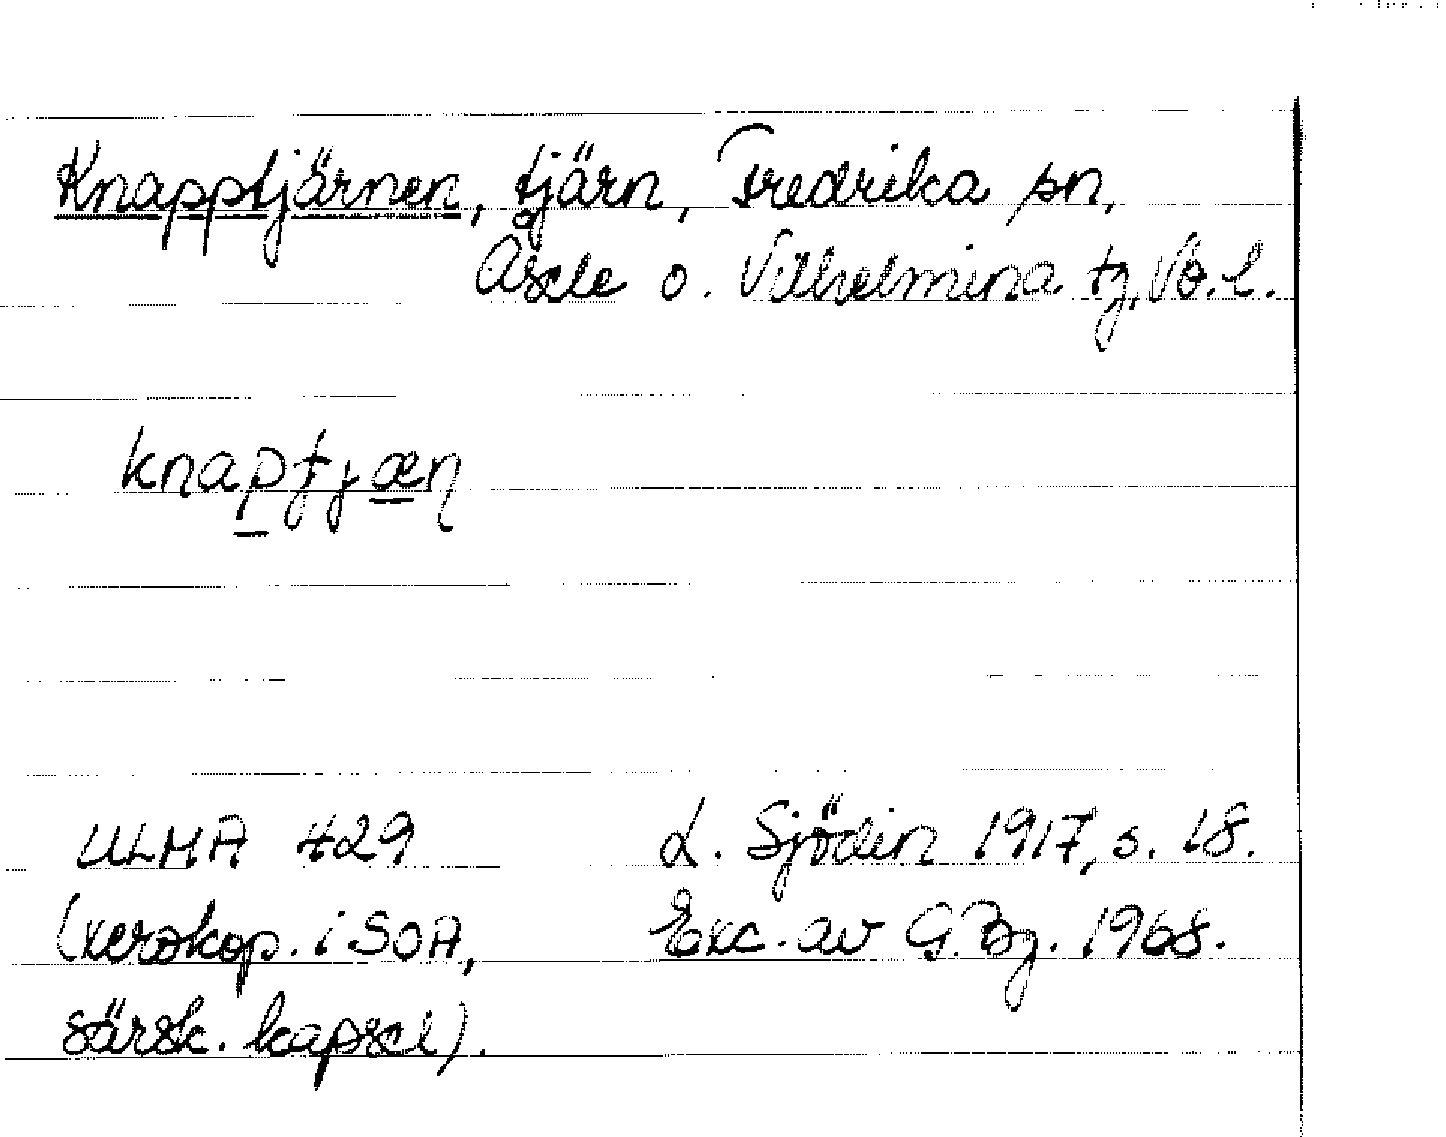 Knapptjärnen, tjärn, Fredrika sn,
Åsele o. Vilhelmina tg, Vb. l.
knaptjæn
ULMA 429
(xerokop. i SOA,
särsk. kapsel).
L. Sjödin 1917, s. 18.
Exc. av G. Bg. 1968.